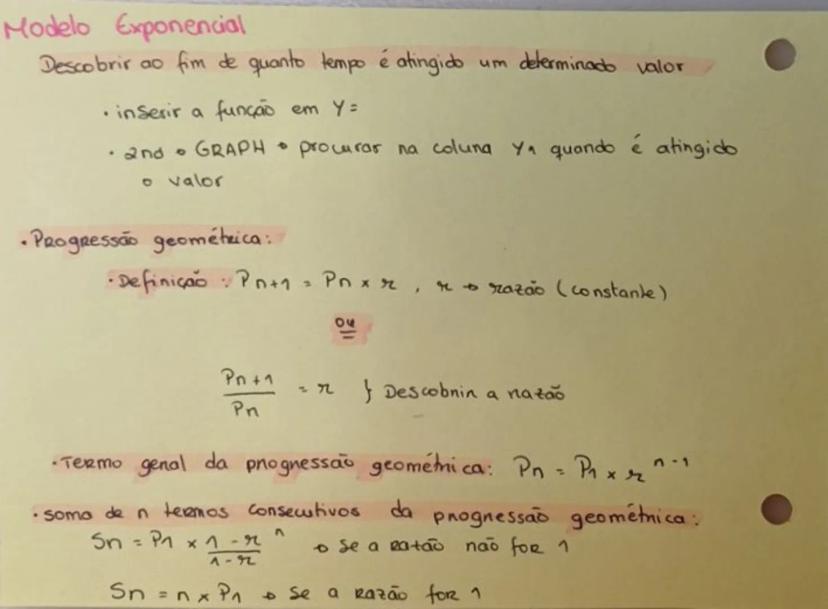 Modelo Exponencial
Descobrir ao fim de quanto tempo é atingido um determinado valor
• inserir a função em Y=
• 2nd → GRAPH → procurar na coluna Y1 quando é atingido
o valor
• Progressão geométrica:
• Definição: Pn+1 = Pn × r , r → razão (constante)
ou
Pn+1 / Pn = r } Descobrir a razão
• Termo geral da progressão geométrica: Pn = P1 × r^n-1
• soma de n termos consecutivos da progressão geométrica:
Sn = P1 × 1 - r^n / 1 - r → se a razão não for 1
Sn = n × P1 → se a razão for 1